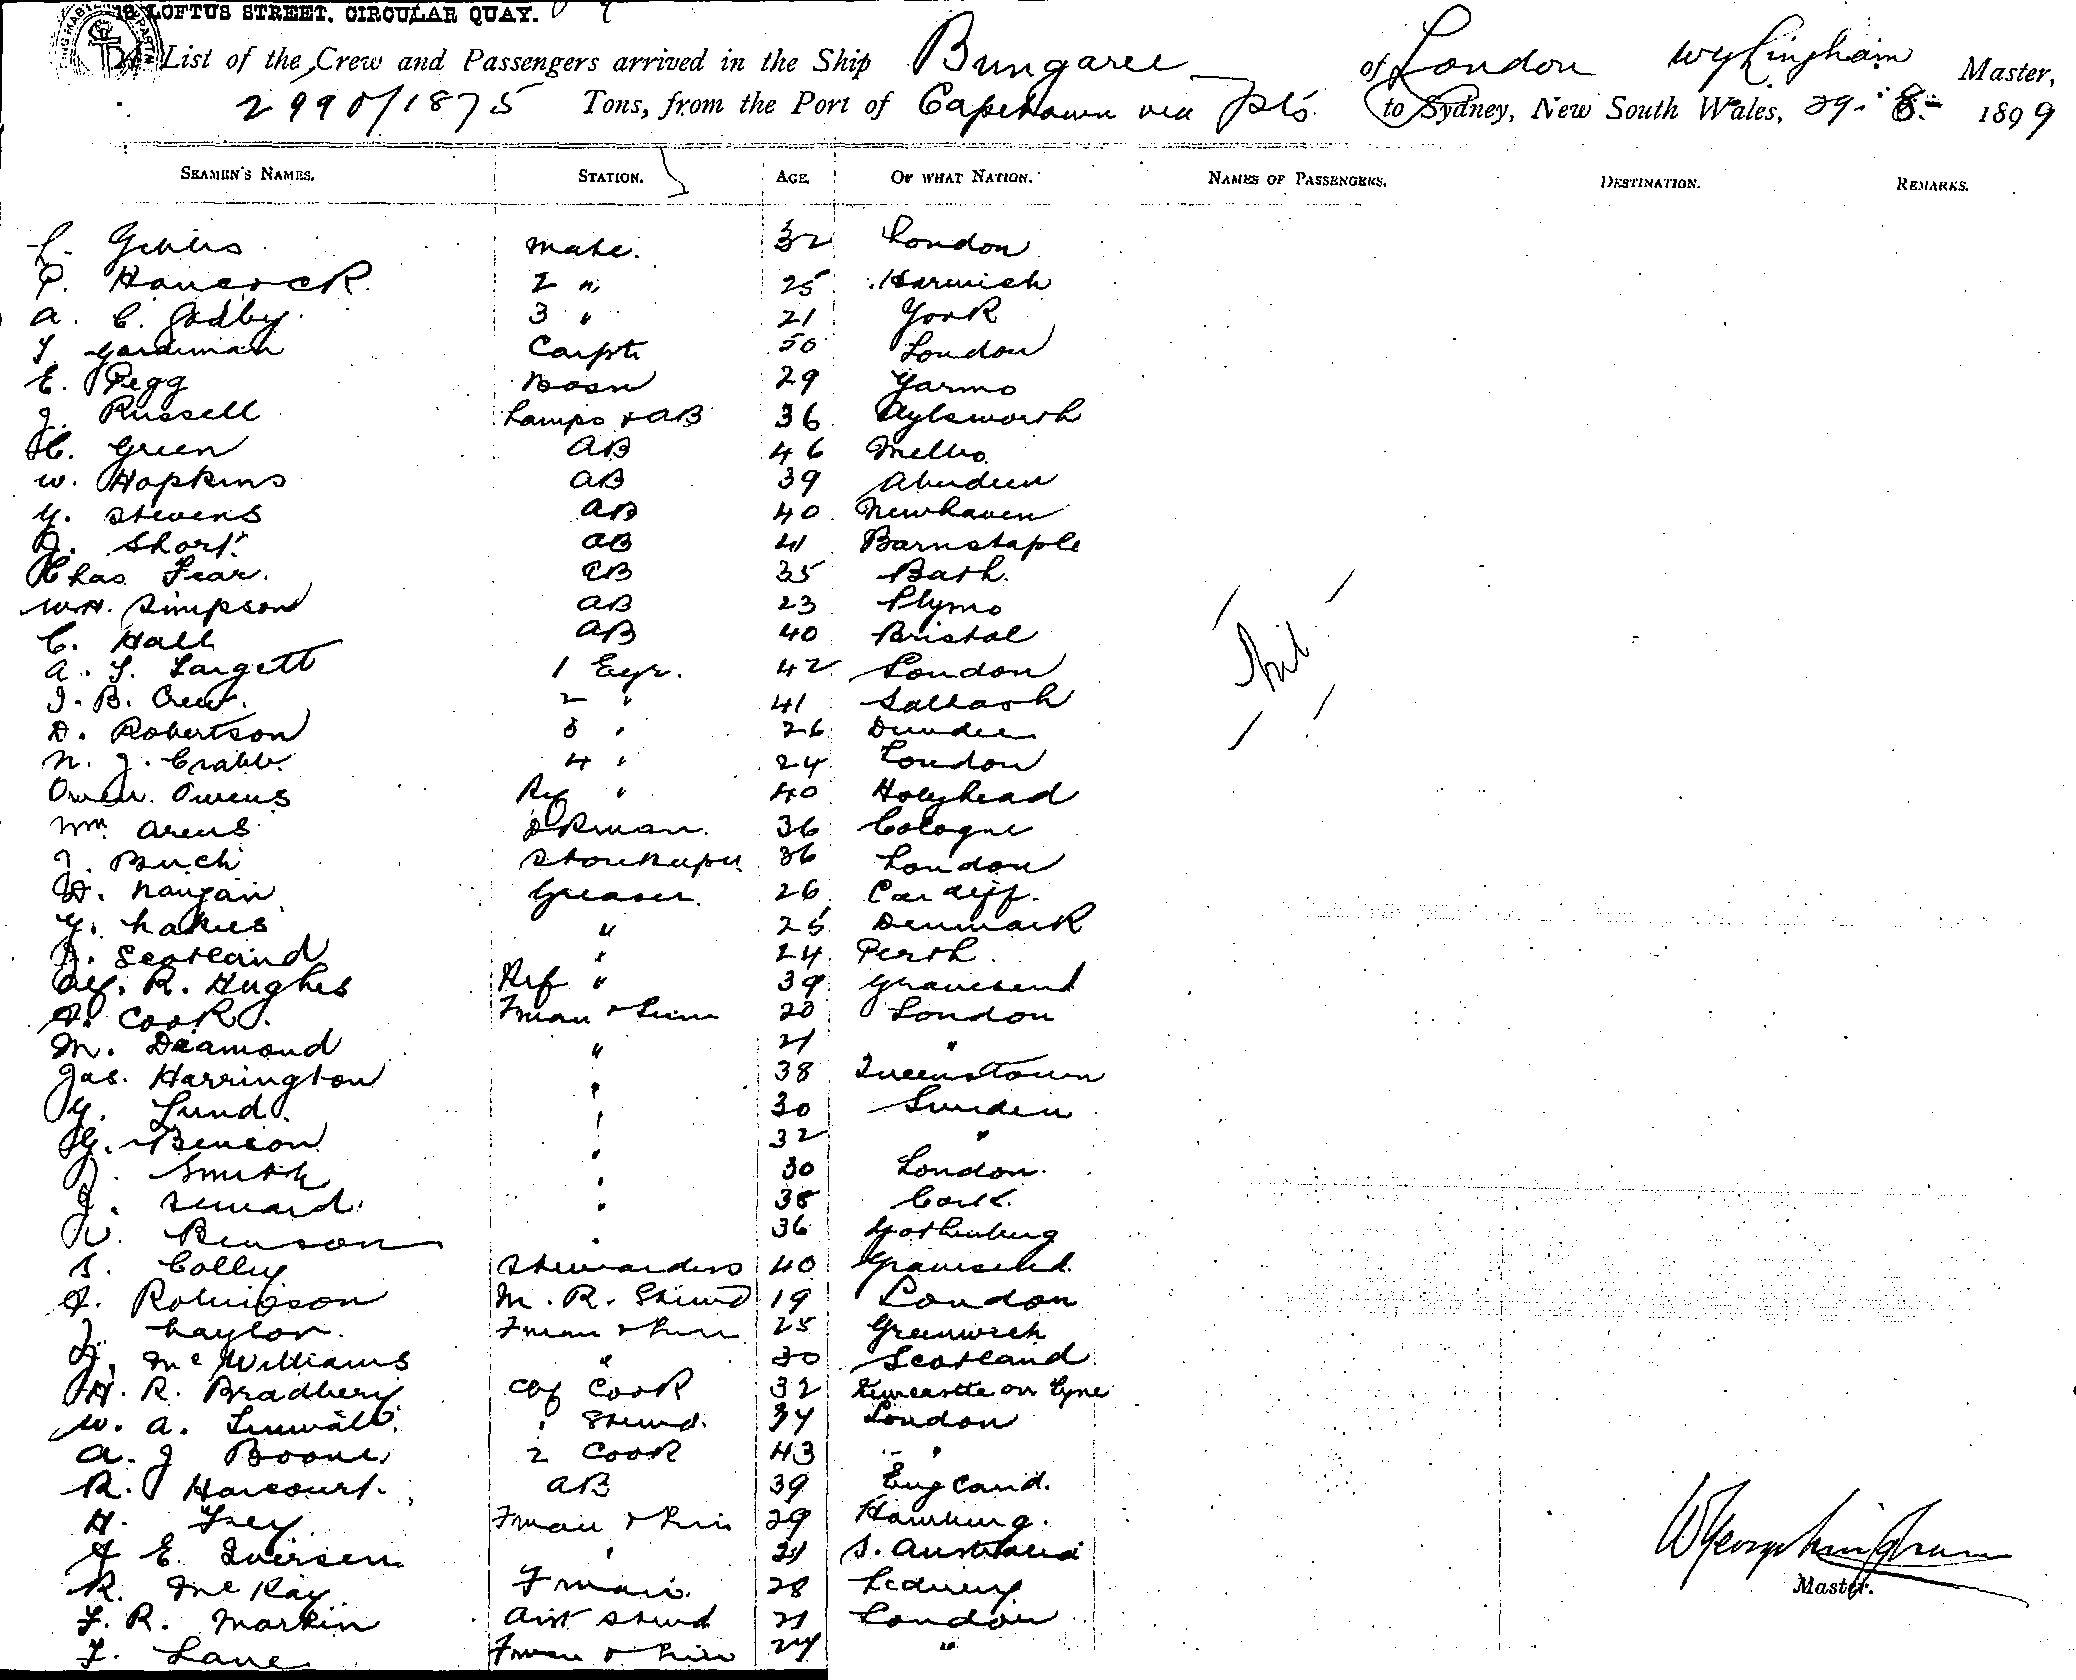 12 LOFTUS STREET. CIRCULAR QUAY.
List of the Crew and Passengers arrived in the Ship Bungaree of London Master,
2990/1875 Tons, from the Port of Capetown via pts to Sydney, New South Wales, 29. 8- 1899
SEAMEN'S NAMES. STATION. AGE. OF WHAT NATION. NAMES OF PASSENGERS. DESTINATION. REMARKS.
Mate. 32 London
P. Hancock 2 " 25 Harwich
A. C. Gadby. 3 " 21 York
Gardiman Carptr 50 London
E. Pegg Bosn 29 Yarmo
J. Russell Lamps & AB 36 Aylsworth
H. Green AB 46 Melbo.
W. Hopkins AB 39 Aberdeen
G. Stevens AB 40 Newhaven
J. Short. AB 41 Barnstaple
Chas Fear. AB 35 Bath.
W.H. Simpson AB 23 Plymo
C. Hall AB 40 Bristol
A. T. Targett 1 Egr. 42 London
J. B. Crew. 2 " 41 Saltash
D. Robertson 3 " 26 Dundee
N. J. Crabb. 4 " 24 London
Owen Owens Ref " 40 Holyhead
Wm. Arens Dkman. 36 Cologne
J. Buch Storekeeper 36 London
Greaser. 26 Cardiff.
" 25 Denmark
J. Scotland " 24 Perth.
Alf. R. Hughes Ref " 39 Gravesend
A. Cook. Fman & Trim 20 London
M. Deamond " 21 "
Jas. Harrington " 38 Queenstown
G. Lund. " 30 Sweden
G. Benson " 32 "
J. Smith " 30 London.
J. Seward. " 38 Cork.
Benson " 36 Gothenburg
S. Colley Stewardess 40 Gravesend.
J. Robinson M. R. Stewd 19 London
J. Taylor. Fman & Trim 25 Greenwich
J. McWilliams " 30 Scotland.
H. R. Bradbery Chf Cook 32 Newcastle on Tyne
W. A. " Stewd. 34 London
A. J Boone 2 Cook 43 "
R. Harcourt. AB 39 England.
H. Frey Fman & Trim 29 Hamburg.
J E. Iversen " 21 S. Australia
R. McKay Fman. 28 Ledney
F. R. Markin Asst Stewd 21 London
F. Lane Fman & Trim 24 "
Nil
Master.